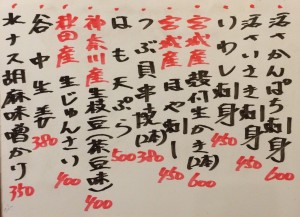 活〆かんぱち刺身 600
活〆いさき刺身 450
いわし刺身 450
宮城産 殻付生かき 600
宮城産 ほや刺し 450
つぶ貝串焼(2本) 380
はも天ぷら 500
神奈川産 生枝豆(茶豆味) 400
秋田産 生じゅんさい 400
谷中生姜 380
水ナス胡麻味噌かけ 350